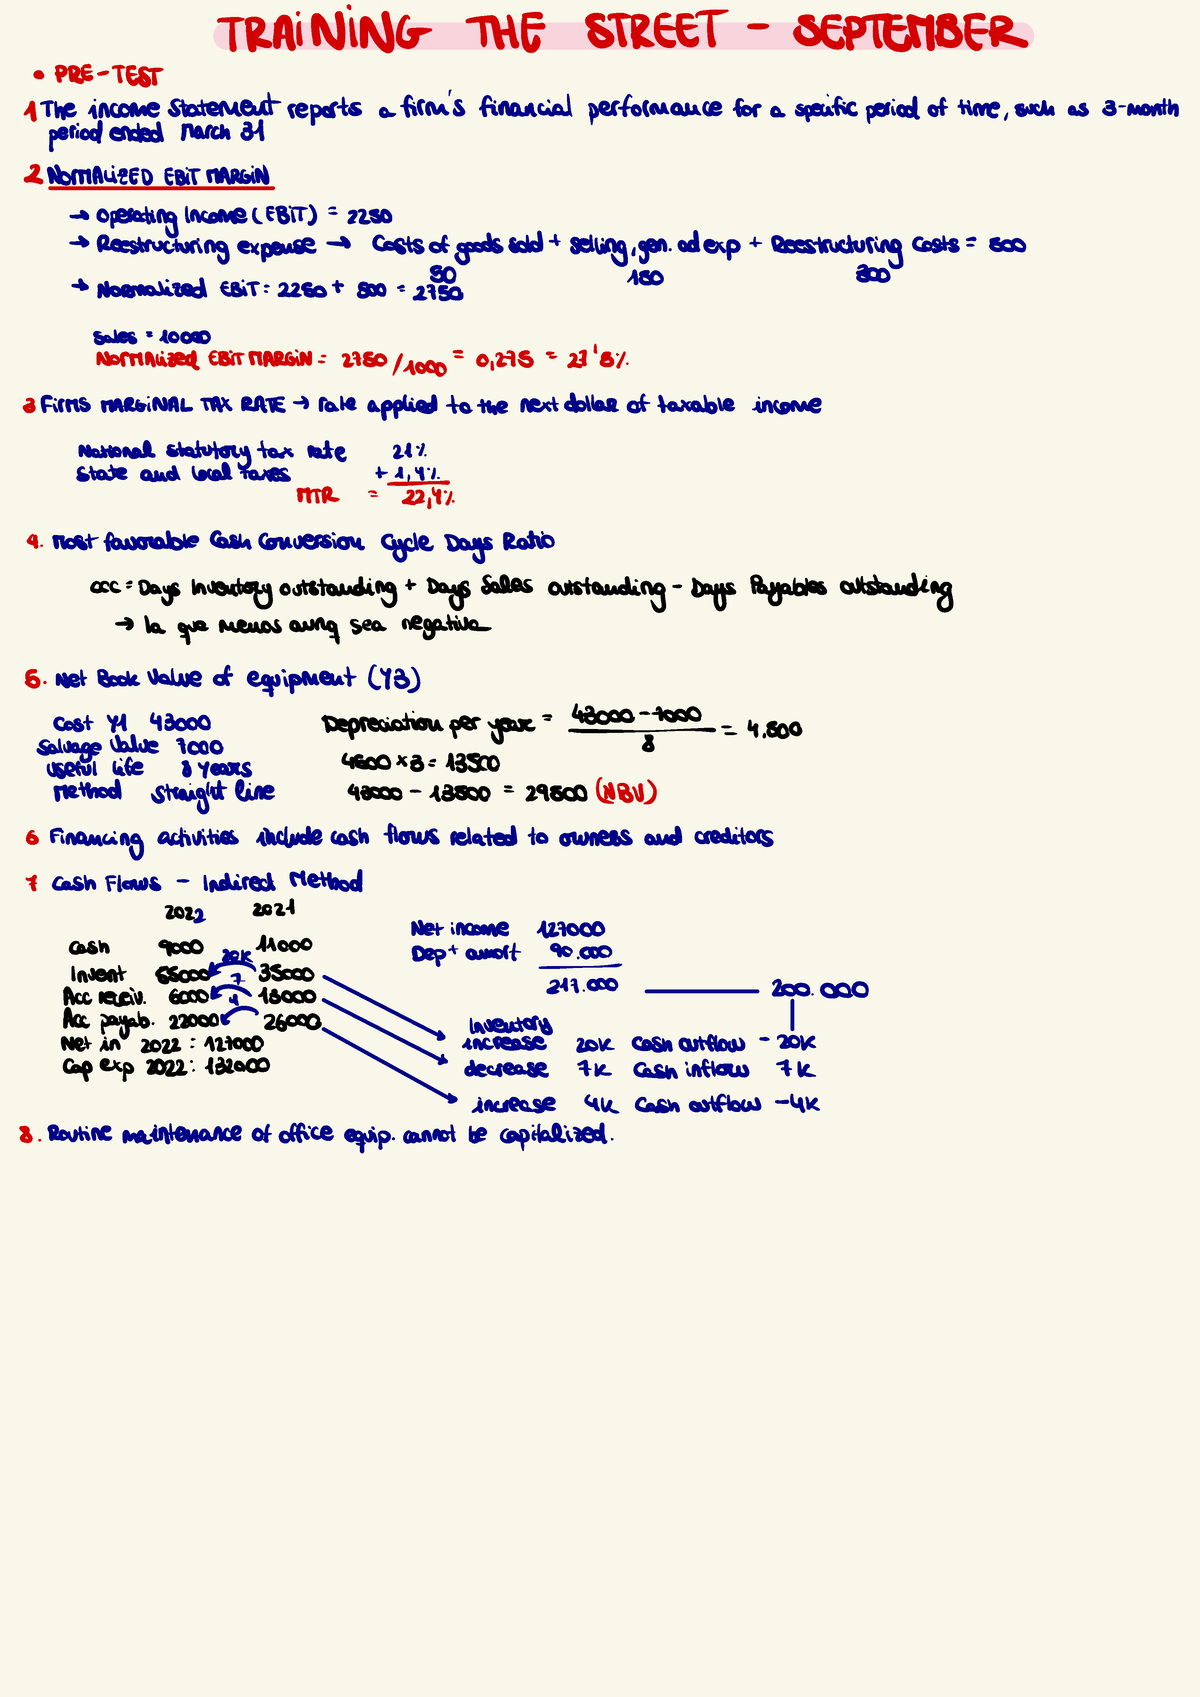 TRAINING THE STREET - SEPTEMBER
• PRE-TEST
1 The income statement reports a firm's financial performance for a specific period of time, such as 3-month
period ended March 31
2 NORMALIZED EBIT MARGIN
→ Operating Income (EBIT) = 2250
→ Reestructuring expense → Costs of goods sold + selling, gen. ad exp + Reestructuring Costs = 500
50 150 300
→ Normalized EBIT = 2250 + 500 = 2750
Sales = 10000
NORMALIZED EBIT MARGIN = 2750/1000 = 0,275 = 27'5%
3 Firms MARGINAL TAX RATE → rate applied to the next dollar of taxable income
National statutory tax rate 21%
State and local taxes + 1,4%
MTR = 22,4%
4. Most favorable Cash Conversion Cycle Days Ratio
CCC = Days Inventory outstanding + Days Sales outstanding - Days Payables outstanding
→ la que menos aunq sea negativa
5. Net Book Value of equipment (Y3)
Cost Y1 43000 Depreciation per year = 43000 - 7000 / 8 = 4.500
Salvage Value 7000
Useful life 8 years 4500 x 3 = 13500
Method straight line 43000 - 13500 = 29500 (NBV)
6 Financing activities include cash flows related to owners and creditors
7 Cash Flows - Indirect Method
2022 2021
Net income 127000
Cash 9000 11000 Dep + amort 90.000
20K
Invent 55000 35000 217.000 200.000
7
Acc receiv. 6000 13000
4
Acc payab. 22000 26000 Inventory
Net in 2022 : 127000 increase 20K Cash outflow - 20K
Cap exp 2022: 132000 decrease 7K Cash inflow 7K
increase 4K Cash outflow -4K
8. Routine maintenance of office equip. cannot be capitalized.